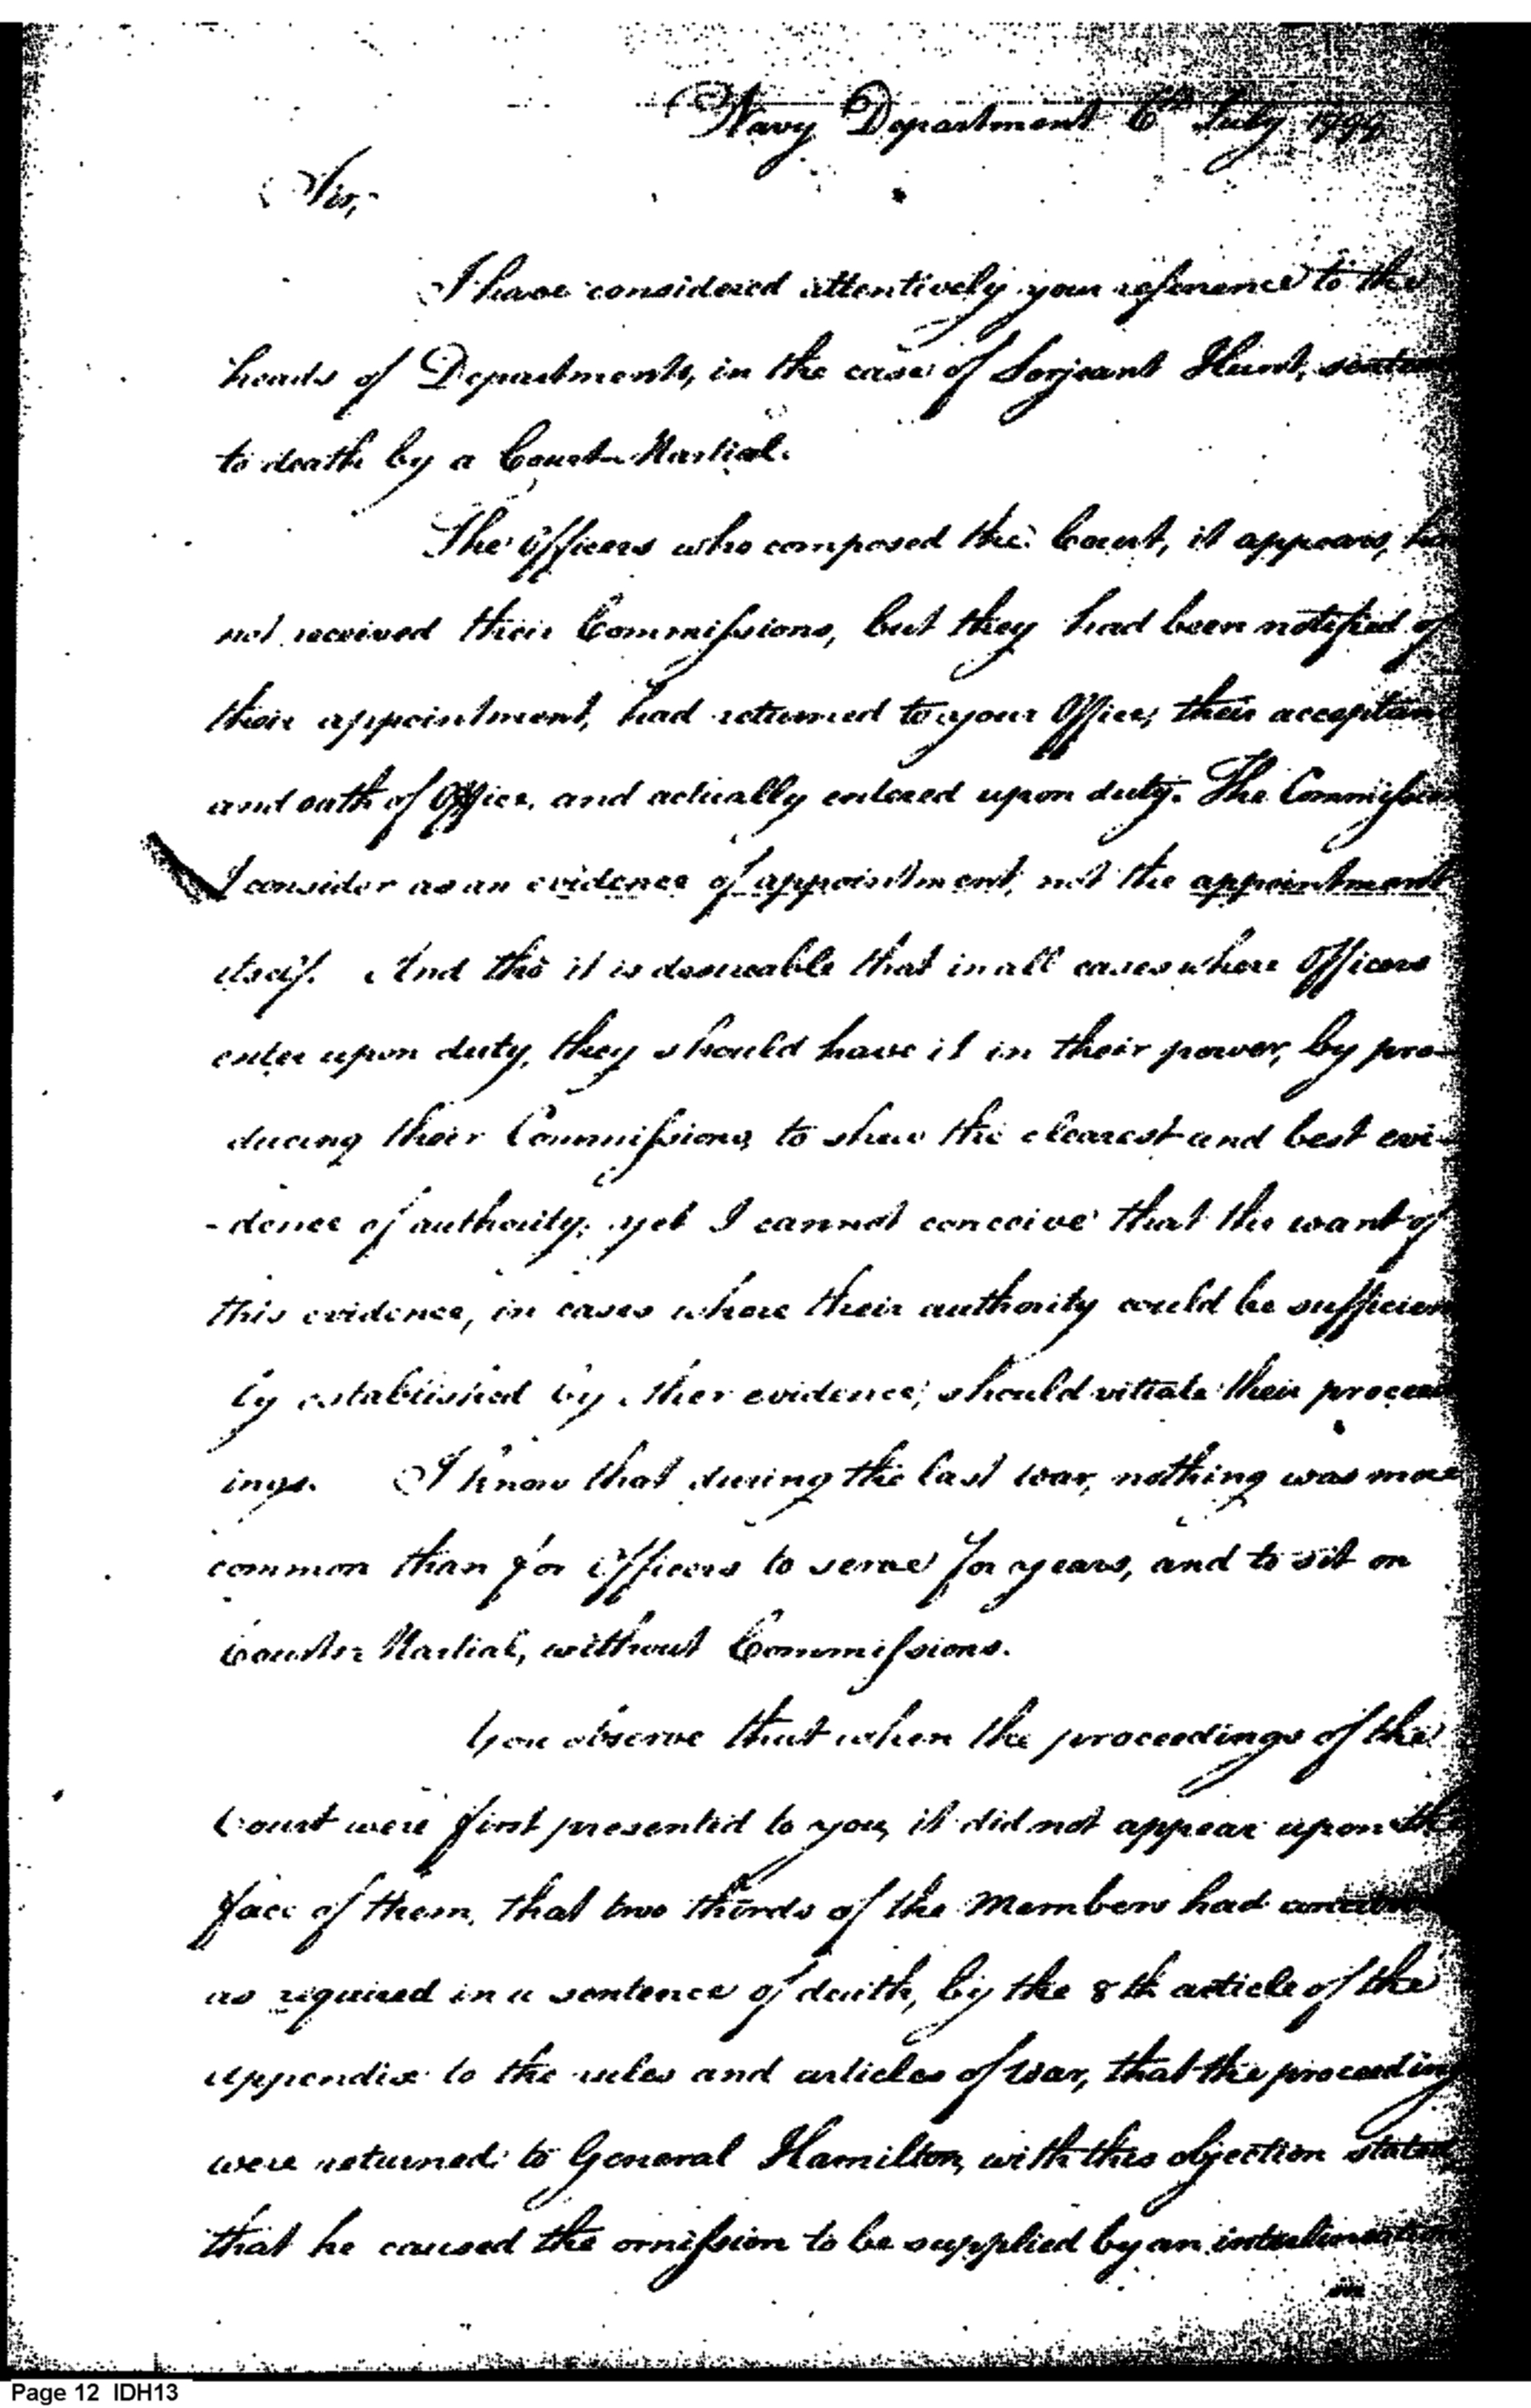 Navy Department 6th July 1799
Sir,
I have considered attentively your reference to the
heads of Departments, in the case of Serjeant Hunt,
to death by a Court-Martial.
The Officers who composed the Court, it appears, had
not received their Commissions, but they had been notified of
their appointment, had returned to your Office, their
and oath of Office, and actually entered upon duty. The
I consider as an evidence of appointment, not the appointment
itself. And tho it is desireable that in all cases where Officers
enter upon duty, they should have it in their power, by pro-
ducing their Commissions, to shew the clearest and best evi-
-dence of authority; yet I cannot conceive that the want of
this evidence, in cases where their authority could be sufficient
ly established by other evidence, should vitiate their proceed
ings. I know that during the last war, nothing was more
common than for Officers to serve for years, and to sit on
Courts Martial, without Commissions.
You observe that when the proceedings of the
Court were first presented to you, it did not appear upon the
face of them, that two thirds of the Members had
as required in a sentence of death, by the 8th article of the
appendix to the rules and articles of War, that the proceedings
were returned to General Hamilton, with this objection stated,
that he caused the omission to be supplied by an
Page 12 IDH13